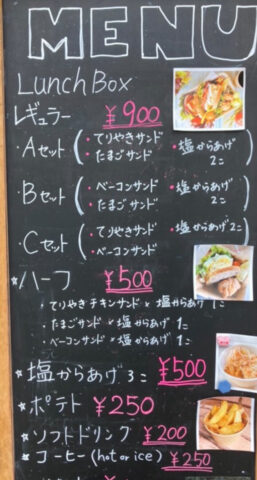 MENU
Lunch Box
レギュラー ¥900
・Aセット(・てりやきサンド ・塩からあげ
・たまごサンド 2コ)
・Bセット(・ベーコンサンド ・塩からあげ
・たまごサンド 2コ)
・Cセット(・てりやきサンド ・塩からあげ2コ
・ベーコンサンド)
★ハーフ ¥500
・てりやきチキンサンド × 塩からあげ 1コ
・たまごサンド × 塩からあげ 1コ
・ベーコンサンド × 塩からあげ 1コ
★塩からあげ 3コ ¥500
★ポテト ¥250
★ソフトドリンク ¥200
★コーヒー(hot or ice) ¥250